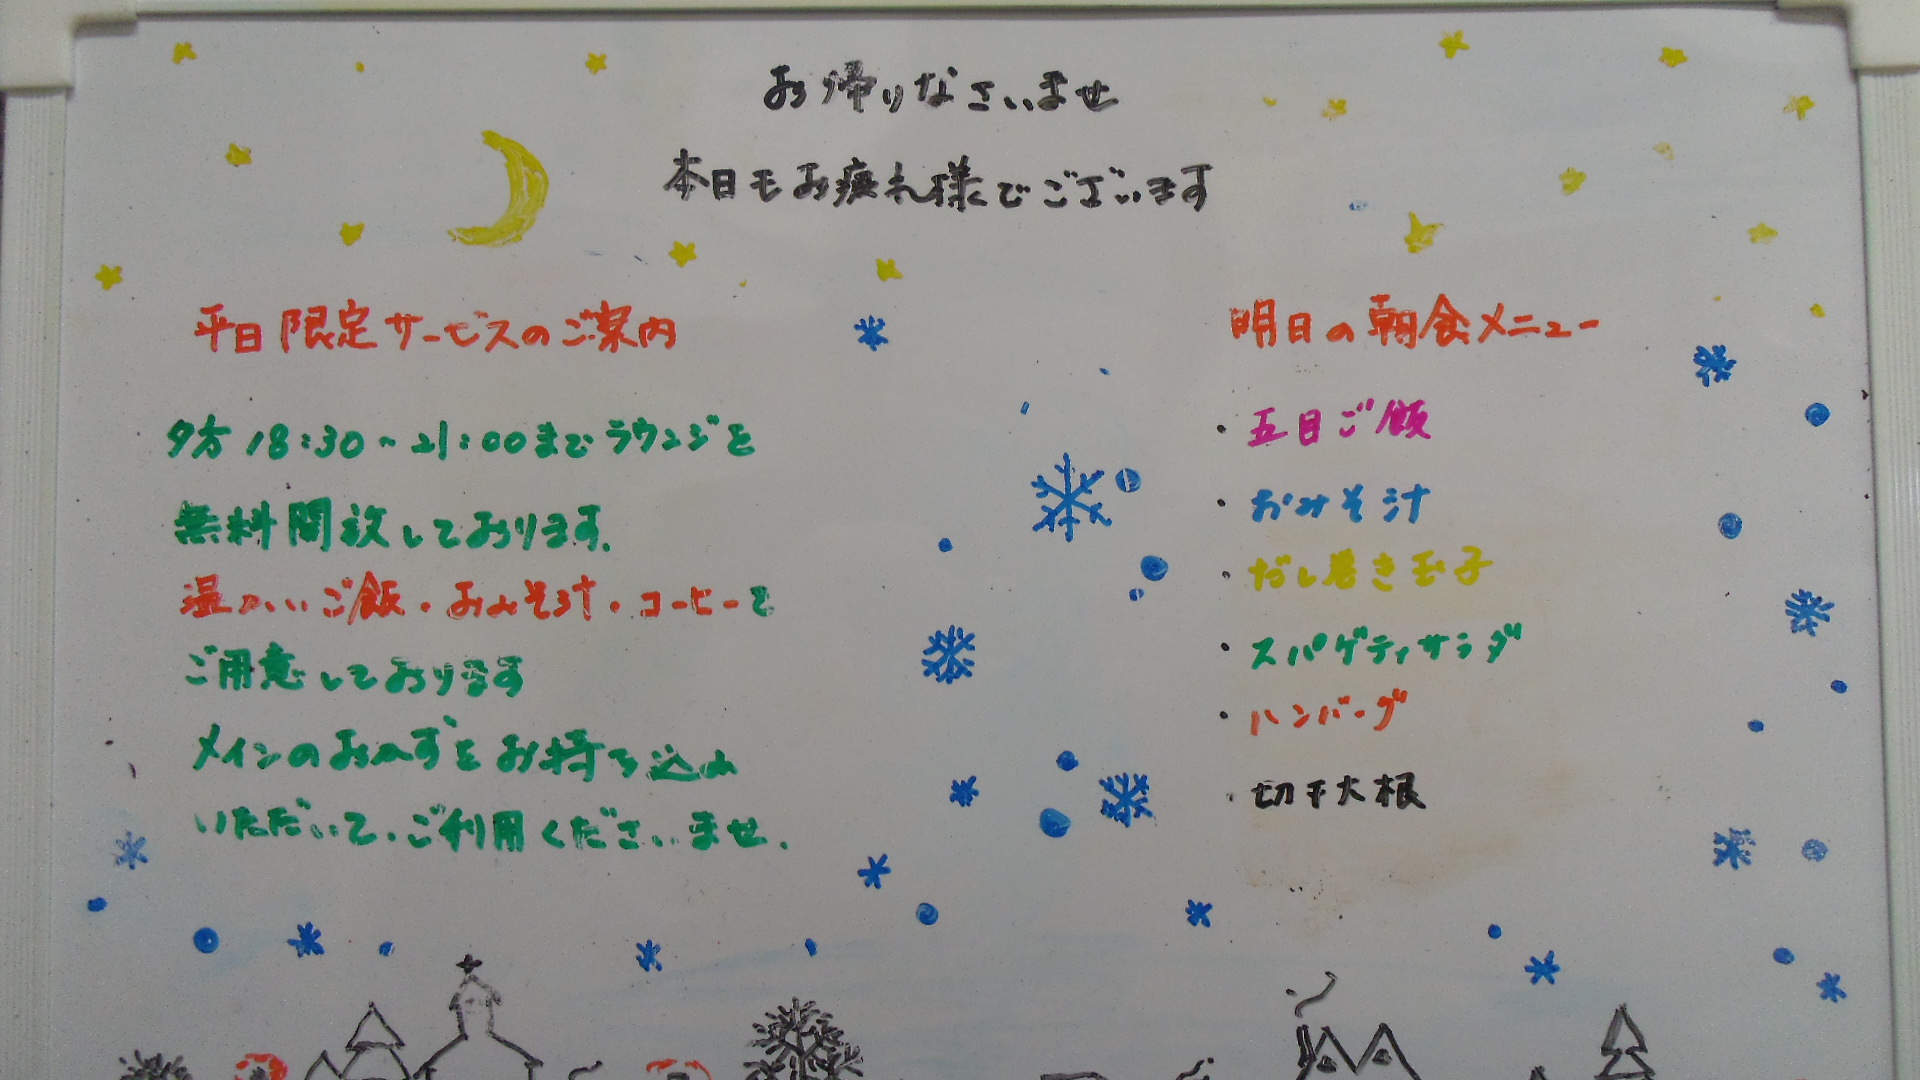 お帰りなさいませ
本日もお疲れ様でございます
平日限定サービスのご案内
夕方18:30~21:00までラウンジを
無料開放しております.
温かいご飯・おみそ汁・コーヒーを
ご用意しております
メインのおかずをお持ち込み
いただいて、ご利用くださいませ.
明日の朝食メニュー
・五目ご飯
・おみそ汁
・だし巻き玉子
・スパゲティサラダ
・ハンバーグ
・切干大根